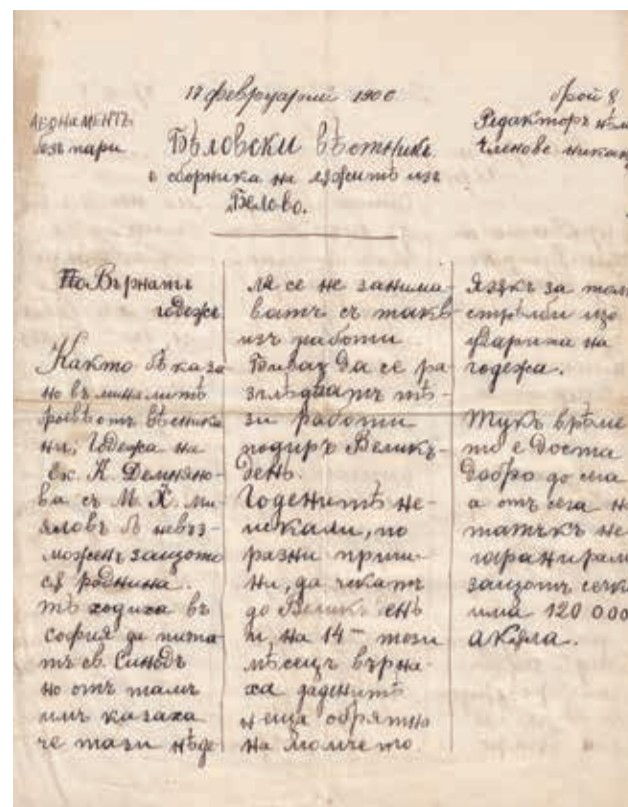 17 февруарий 1900
брой 8
АБОНАМЕНТЪ
безъ пари
Редакторъ нѣма
Членове никакъ
Бѣловски вѣстникъ
о сборника на лѫжитѣ изъ
Бѣлово.
По Върнатъ
годежъ
Както бѣ каза
но въ миналитѣ
броевѣ отъ вѣсника
ни, Годежа на
ек. Н. Демняно-
ва съ М. Х. ми-
яловъ бѣ невъз-
моженъ защото
сѫ роднина.
тѣ ходиха въ
софия да пита-
тъ св. Синодъ
но отъ тамъ
имъ казаха
че тази нѣде
ля се не занима-
ватъ съ такв
изъ работи
Бивал да се ра
зглѣдватъ тѣ-
зи работи
подиръ Великъ-
день.
Годенитѣ не-
искали, по
разни причи-
ни, да чекатъ
до Великъ енъ
и, на 14 – този
мѣсецъ върна-
ха даденитѣ
неща обрятно
на момчето.
Язжк за тол
стрѣлби изо
царииха на
годежа.
Тукъ врѣме
то е доста
добро до сега
а отъ сега на
татъкъ не
гарантирам
защотъ сечк
има 120 000
акѫла.